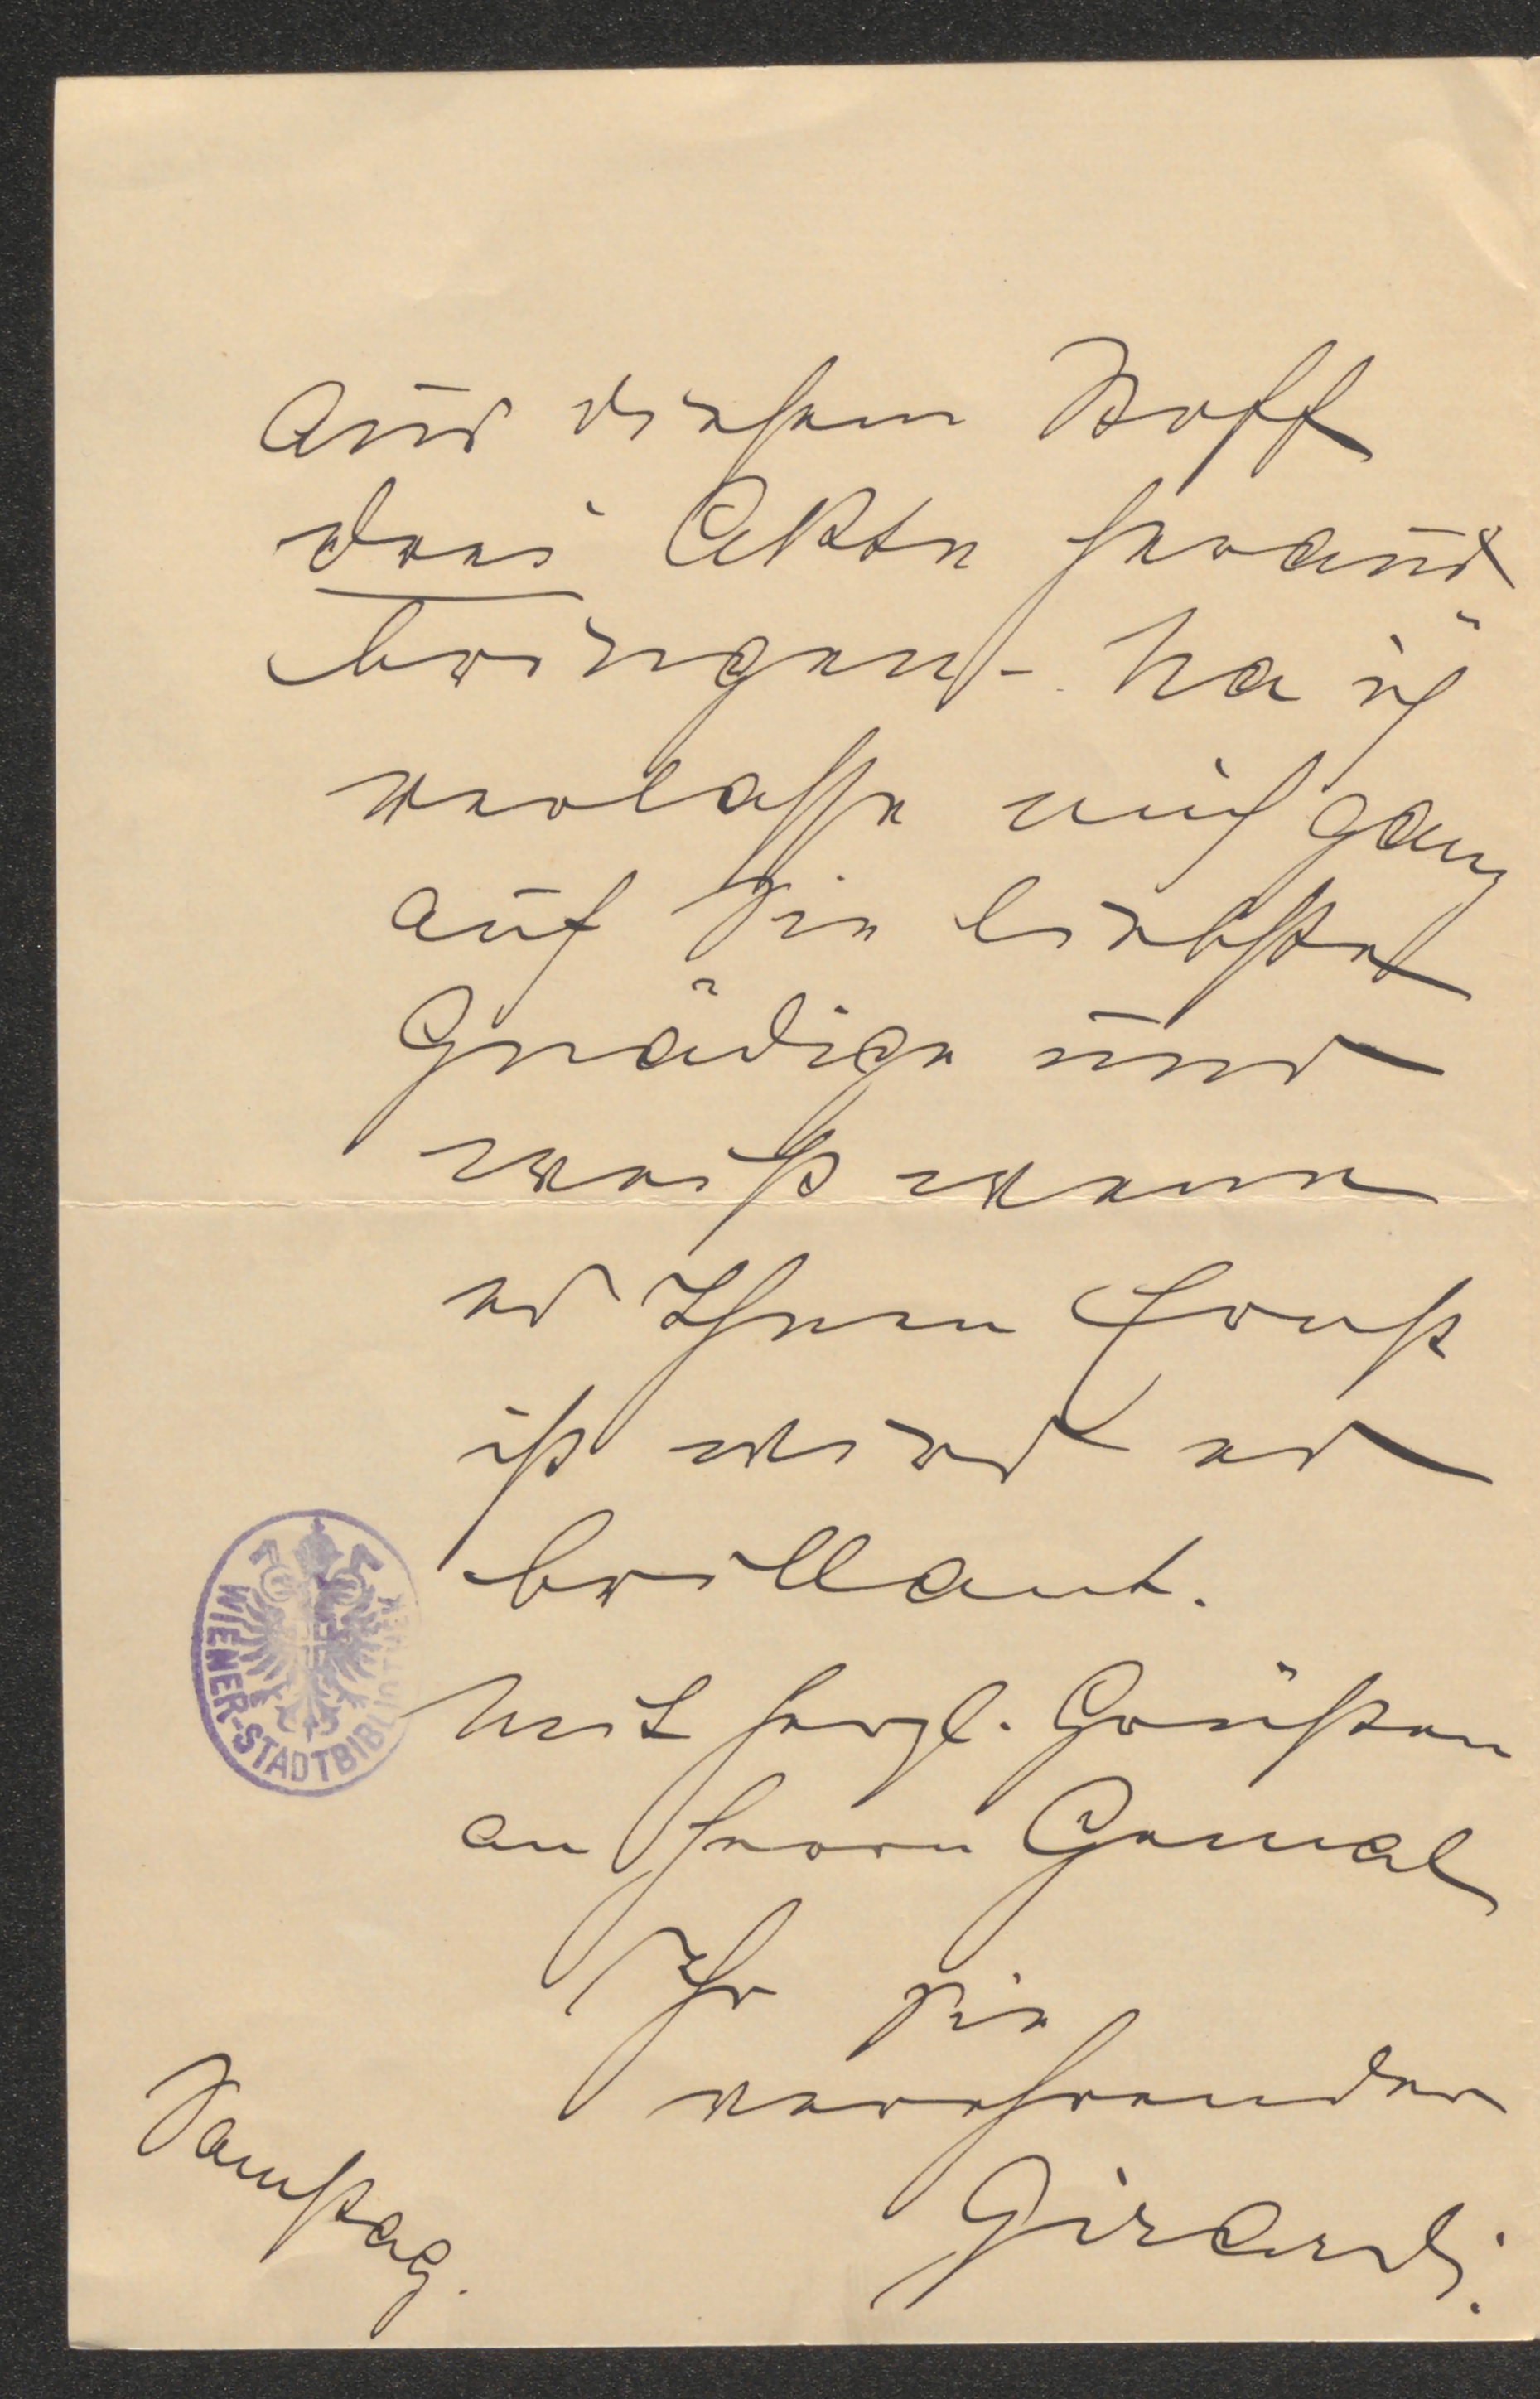 aus diesem Stoff
drei Akte heraus
bringen – Na ich
verlasse mich ganz
auf Sie liebste
Gnädige und
weiß wenn
es Ihnen Ernst
ist wird es
brillant.
Mit herzl. Grüßen
an Herrn Gemal
Ihr Sie
verehrender
Girardi.
Samstag.
WIENER-STADTBIBLIOTHEK